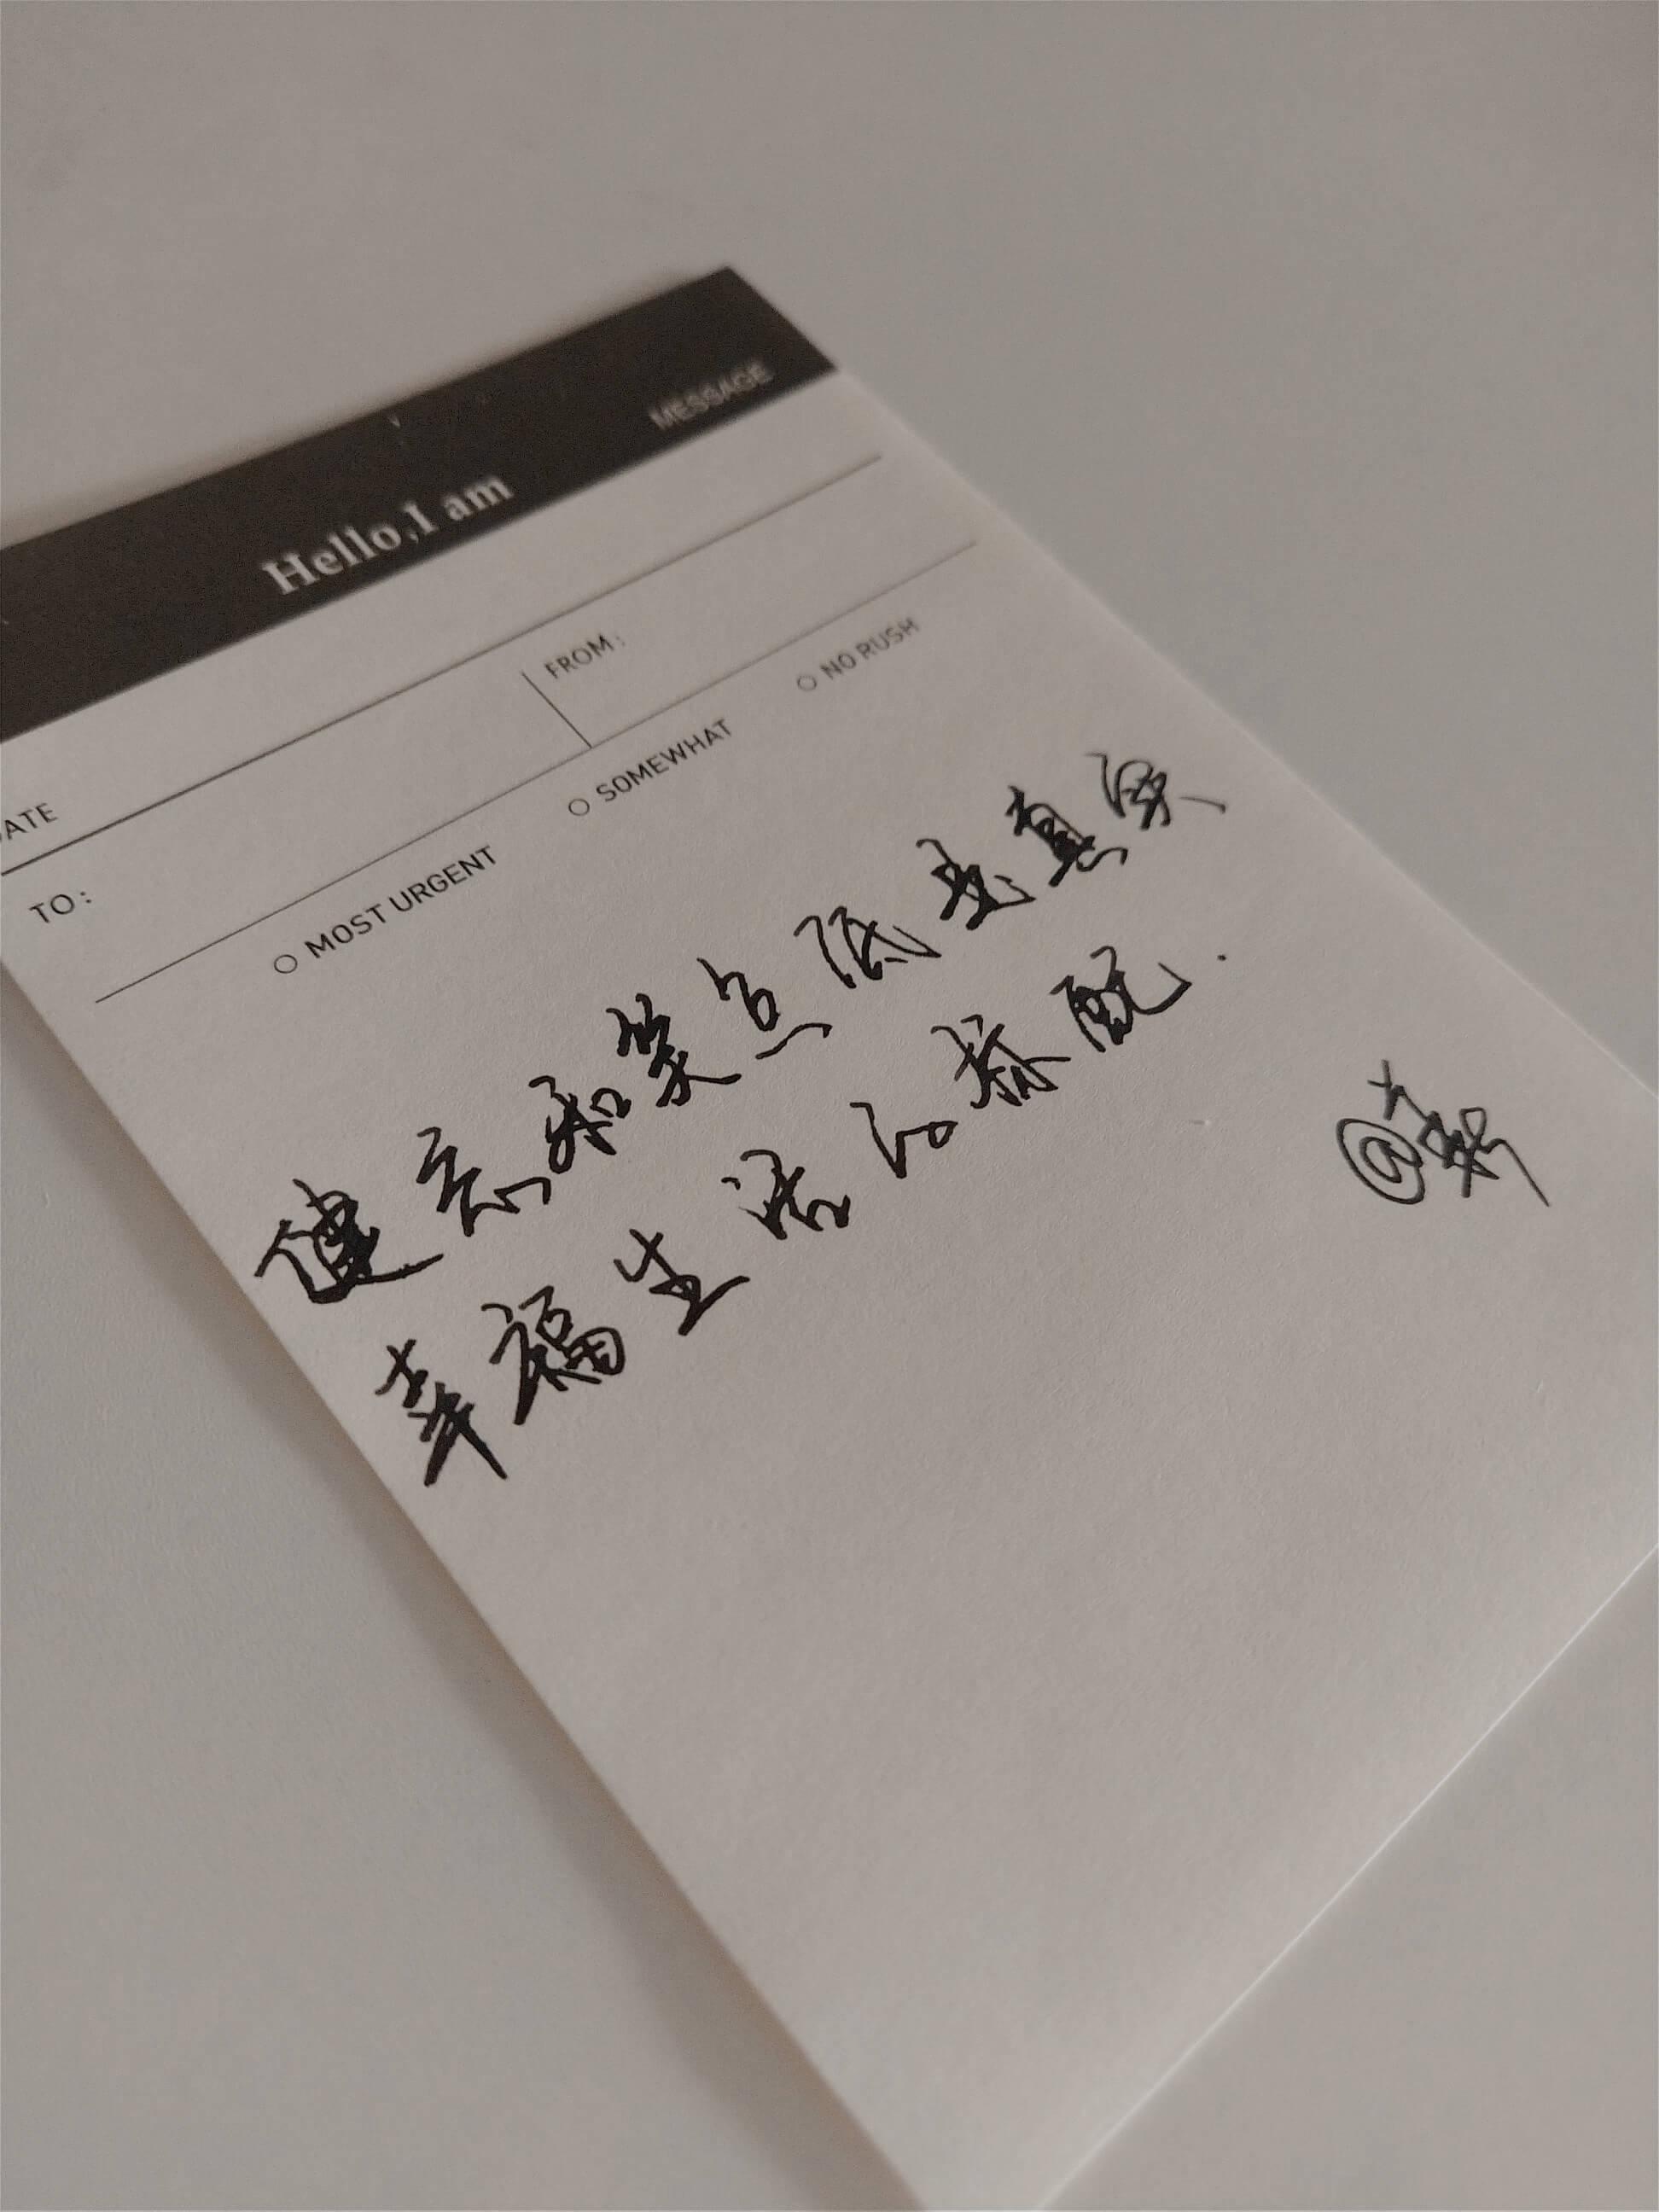 MESSAGE
Hello,I am
DATE
TO:
FROM:
MOST URGENT
SOMEWHAT
NO RUSH
健忘和笑点低是真实
幸福生活的标配.